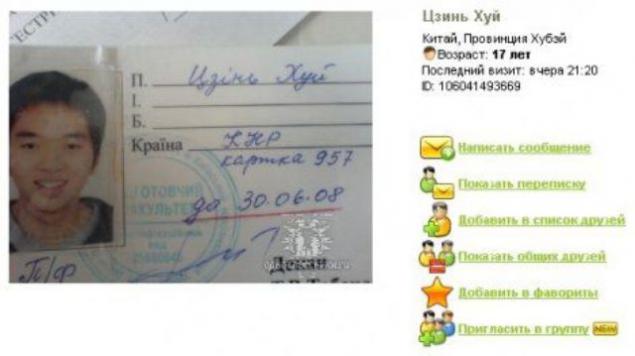 Цзинь Хуй
Китай, Провинция Хубэй
Возраст: 17 лет
Последний визит: вчера 21:20
ID: 106041493669
П. Цзінь Хуй
І.
Б.
Країна КНР
картка 957
до 30.06.08
Декан
П/Ф
Написать сообщение
Показать переписку
Добавить в список друзей
Показать общих друзей
Добавить в фавориты
Пригласить в группу NEW